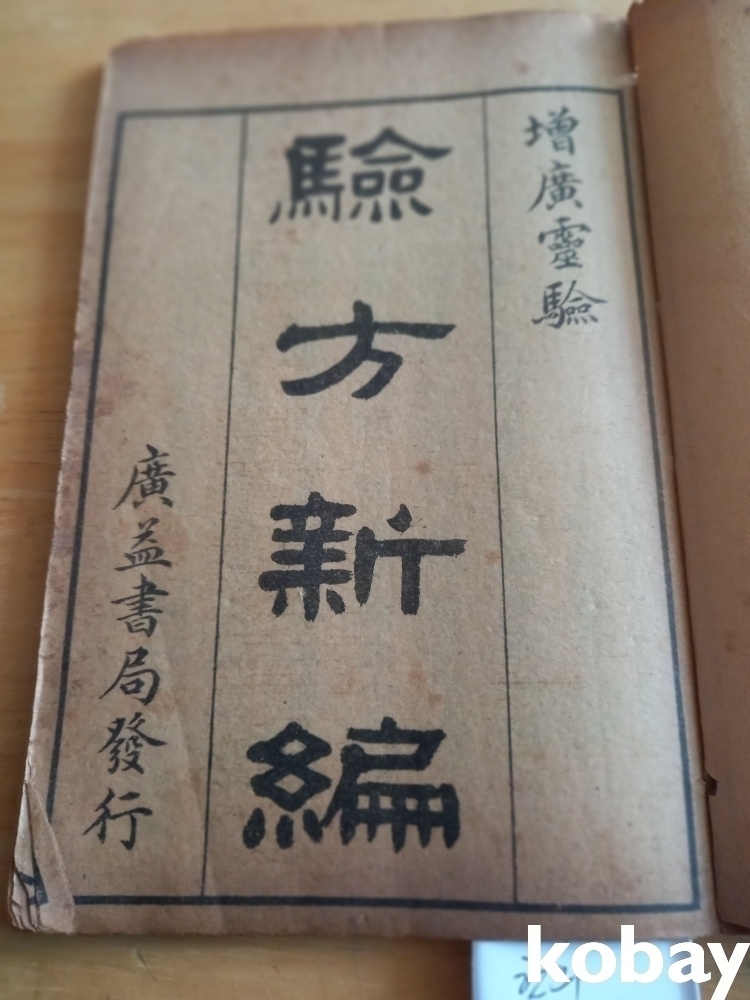 增廣靈驗
驗方新編
廣益書局發行
kobay